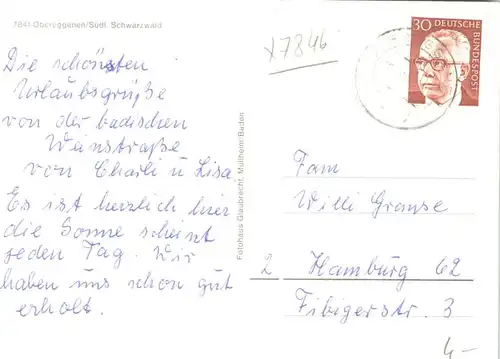 7841 Obereggenen/Südl. Schwarzwald
Die schönsten
Urlaubsgrüße
von der badischen
Weinstraße
von Charli u Lisa.
Es ist herzlich hier
die Sonne scheint
jeden Tag. Wir
haben uns schon gut
erholt.
Fotohaus Glaubrecht, Müllheim/Baden
x7846
30 DEUTSCHE
BUNDESPOST
Fam
Willi Granse
2 Hamburg 62
Fibigerstr. 3
4,-